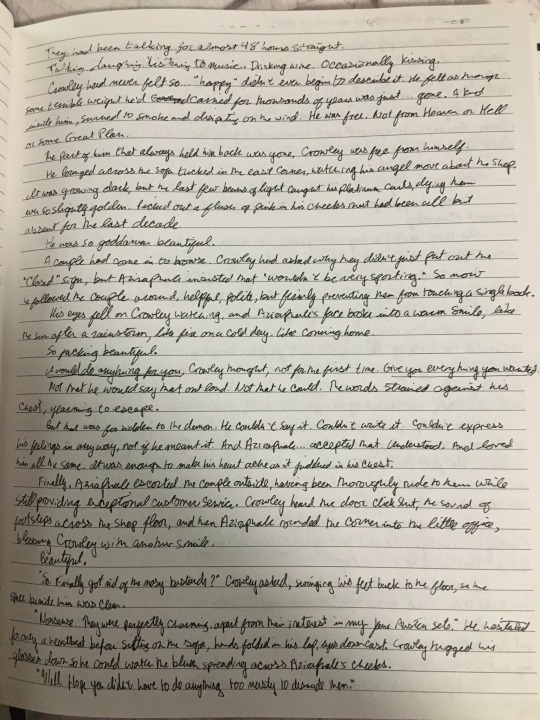 They had been talking for almost 48 hours straight.
Talking, laughing, listening to music. Drinking wine. Occasionally kissing.
Crowley had never felt so... "happy" didn't even begin to describe it. He felt as though
some terrible weight he'd carried for thousands of years was just... gone. A knot
inside him, turned to smoke and dissipating on the wind. He was free. Not from Heaven or Hell
or some Great Plan.
The part of him that always held him back was gone, Crowley was free from himself.
He lounged across the sofa tucked in the east corner, watching his angel move about the shop.
It was growing dark, but the last few beams of light caught his platinum curls dying them
ever so slightly golden. Picked out a flush of pink in his cheeks that had been all but
absent for the last decade
He was so goddamn beautiful.
A couple had come in to browse. Crowley had asked why they didn't just put out the
"Closed" sign, but Aziraphale insisted that "wouldn't be very sporting." So now
he followed the couple around, helpful, polite, but firmly preventing them from touching a single book.
His eyes fell on Crowley watching, and Aziraphale's face broke into a warm smile, like
the sun after a rainstorm, like fire on a cold day. Like coming home.
So fucking beautiful.
I would do anything for you, Crowley thought, not for the first time. Give you everything you wanted.
Not that he would say that out loud. Not that he could. The words strained against his
chest, yearning to escape.
But that was forbidden to the demon. He couldn't say it. Couldn't write it. Couldn't express
his feelings in any way, not if he meant it. And Aziraphale... accepted that. Understood. And loved
him all the same. It was enough to make his heart ache as it in his chest.
Finally, Aziraphale escorted the couple outside, having been thoroughly rude to them while
still providing exceptional customer service. Crowley heard the door click shut, the sound of
footsteps across the shop floor, and then Aziraphale rounded the corner into the little office,
blessing Crowley with another smile.
Beautiful.
"So. Finally got rid of the nosy bastards?" Crowley asked, swinging his feet back to the floor, so the
space beside him was clear.
"Nonsense. They were perfectly charming, apart from their interest in my Jane Austen sets." He hesitated
for only a heartbeat before sitting on the sofa, hands folded in his lap, eyes downcast. Crowley tugged his
glasses down so he could watch the blush spreading across Aziraphale's cheeks.
"Well. Hope you didn't have to do anything too nasty to dissuade them."